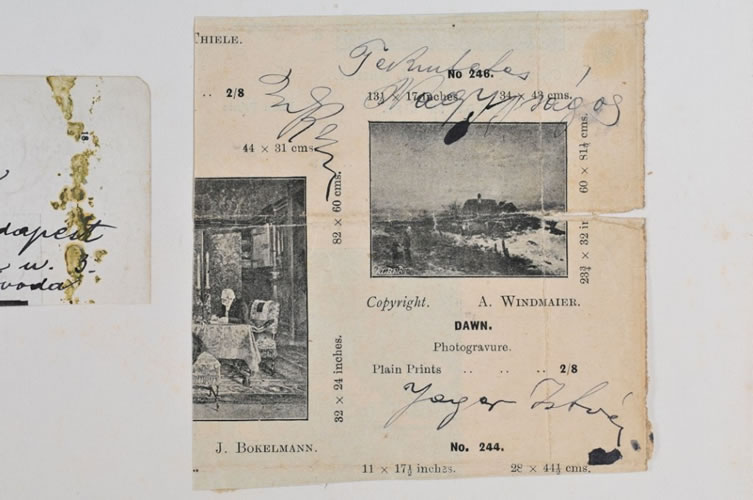 THIELE.
No 246.
2/8
13½ × 17 inches. 34 × 43 cms.
44 × 31 cms.
82 × 60 cms.
60 × 81½ cms.
23¾ × 32 in
Copyright. A. WINDMAIER.
DAWN.
Photogravure.
Plain Prints .. .. .. 2/8
32 × 24 inches.
Jager István
J. BOKELMANN.
No. 244.
11 × 17½ inches. 28 × 44½ cms.
dapest
u. 3.